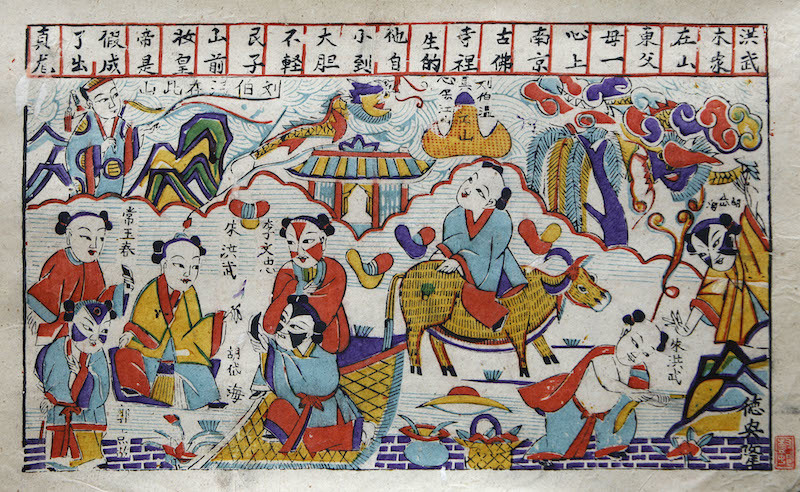 洪武本家在山東父母一心上南京古佛寺裡生的他自小到大胆不輕艮子山前妆皇帝是假成了出真龙
刘伯温在此山
刘伯温
胡岱海
常王春
朱洪武
李文忠
胡岱海
朱洪武
郭
德